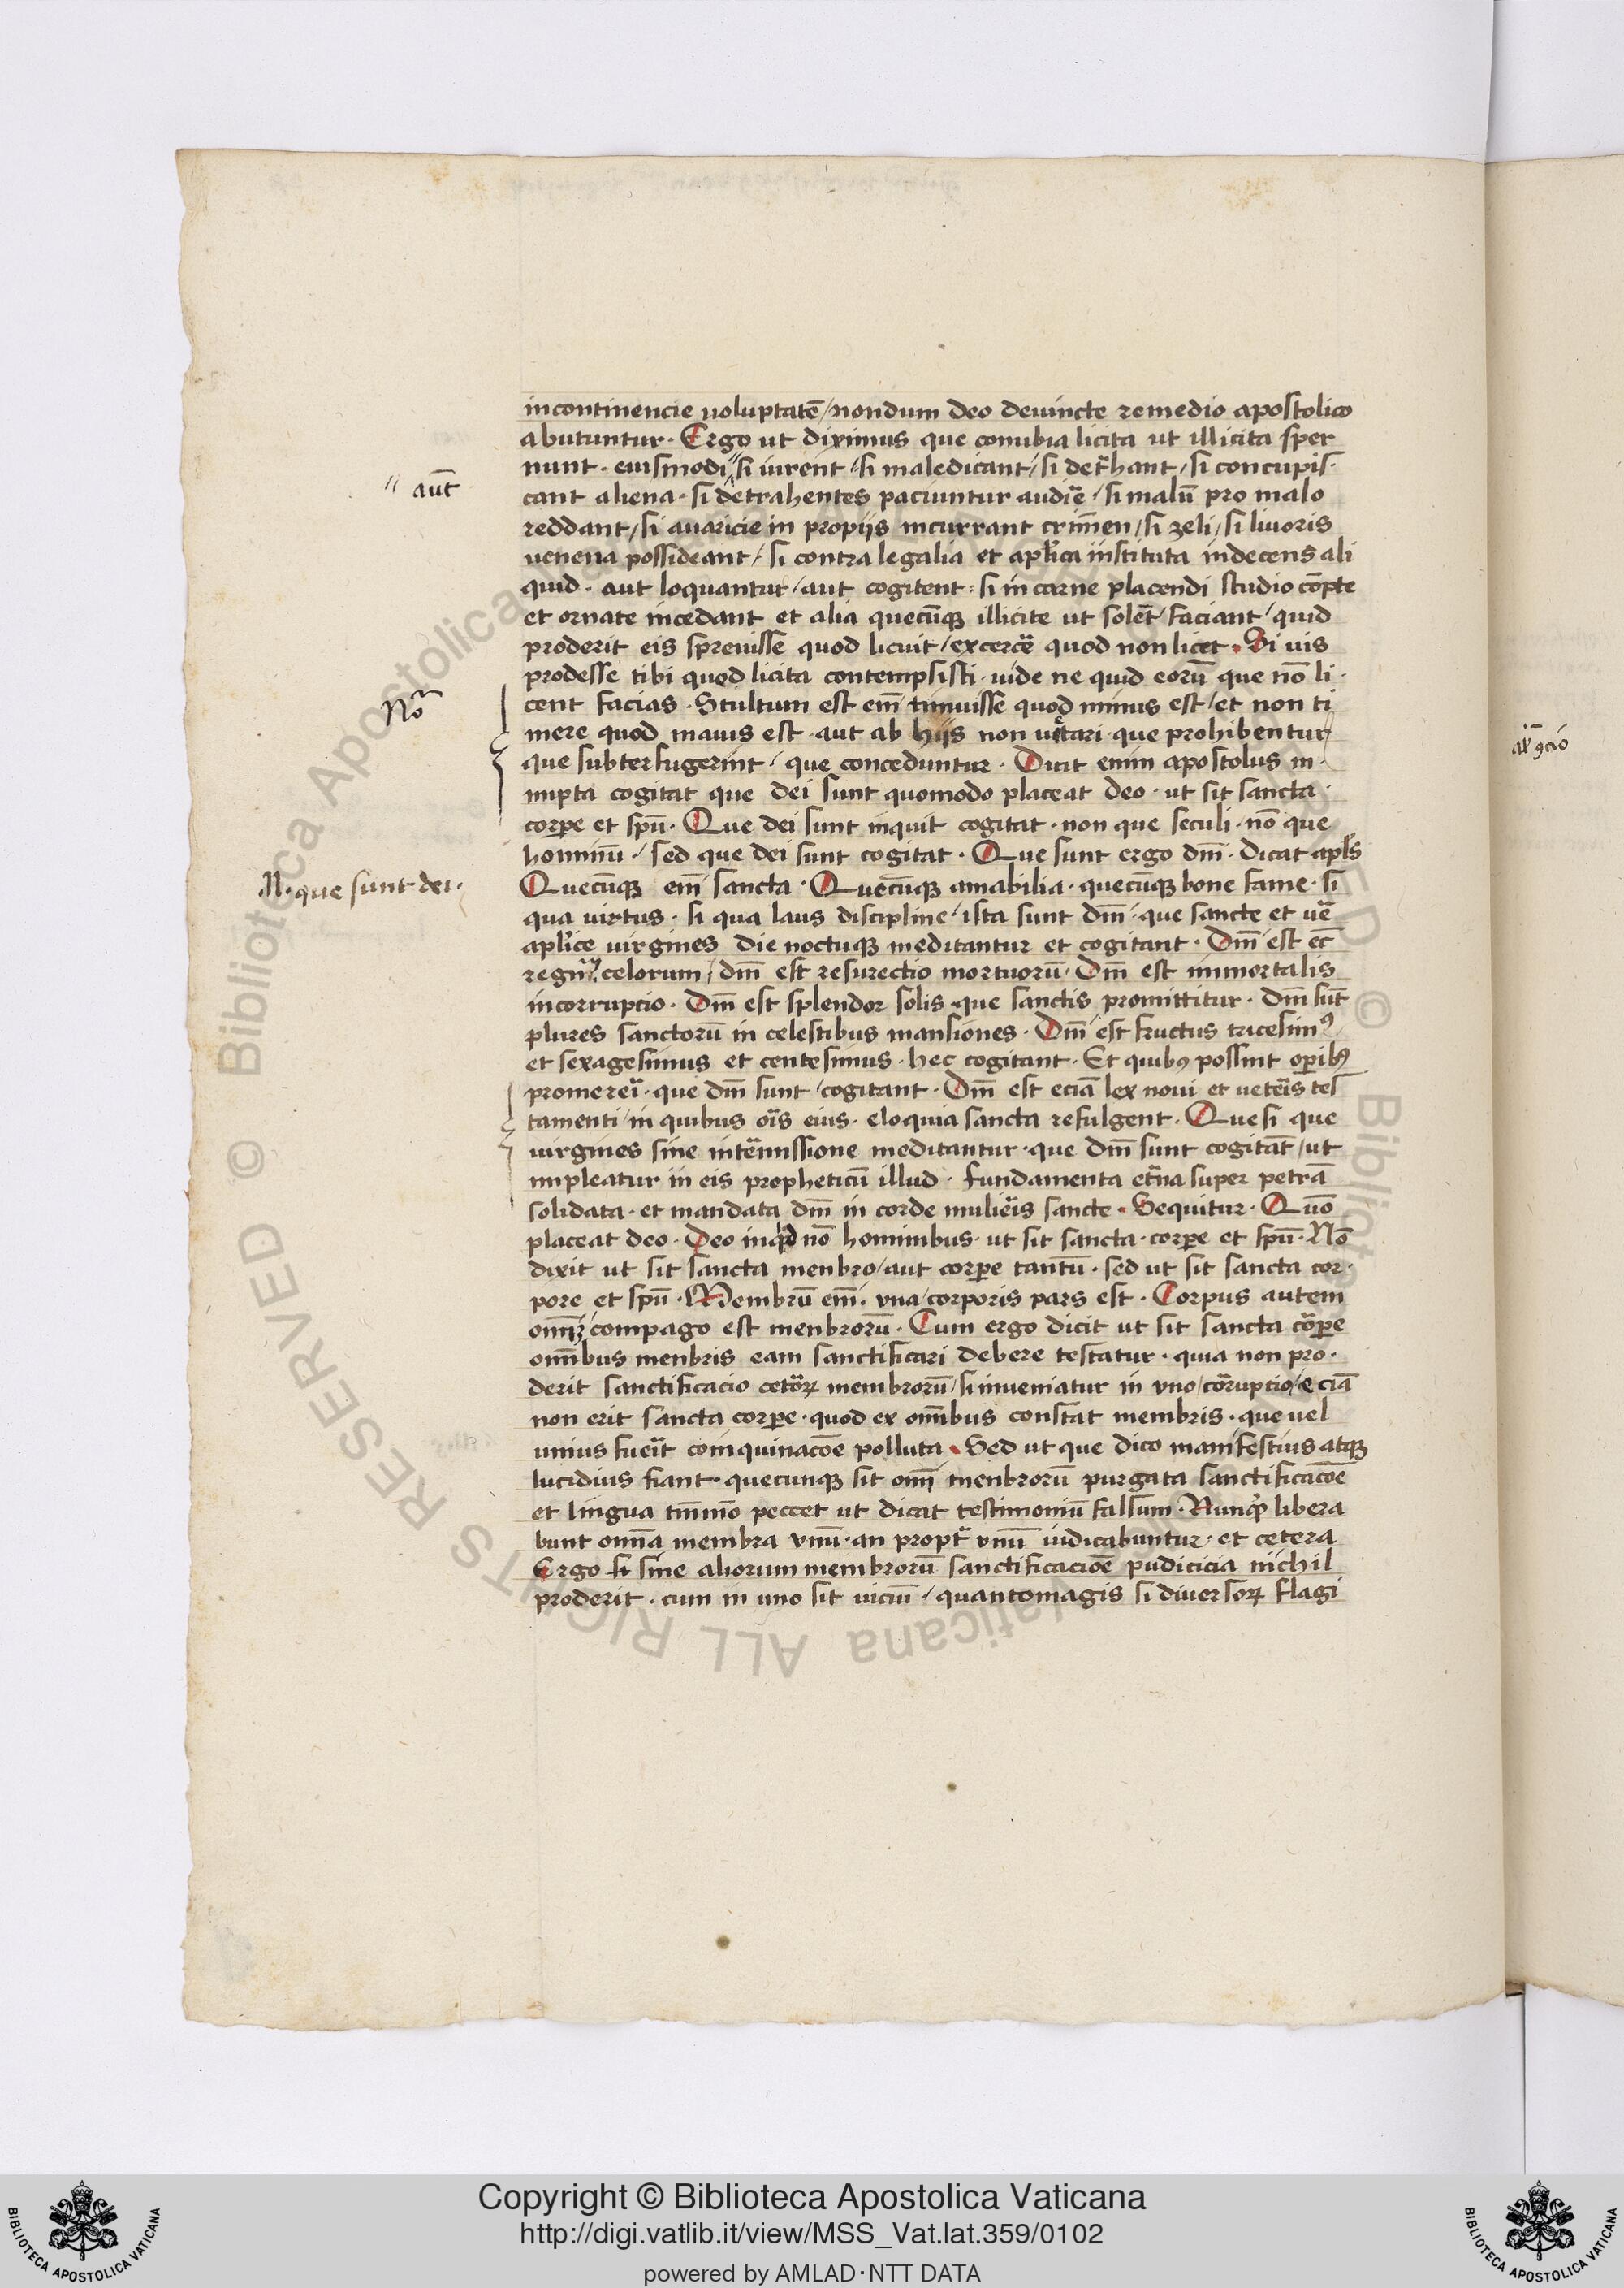 incontinencie uoluptatē / nondum deo deuincte remedio apostolico
abutuntur · Ergo ut diximus que conubia licita ut illicita sper
nunt · eiusmodi si iurent / si maledicant / si det̃hant / si concupis·
aut̃
cant aliena · si detrahentes paciuntur audir̃e / si malū pro malo
reddant / si auaricie in propijs incurrant crim̃en / si zeli / si liuoris
uenena possideant / si contra legalia et apl̃ica instituta indecens ali
quid · aut loquantur / aut cogitent : si in carne placendi studio cōpte
et ornate incedant et alia quecūqꝫ illicite ut solēt / faciant / quid
proderit eis spreuisse quod licuit / excercer̃e quod non licet · Si uis
prodesse tibi quod licita contempsisti · uide ne quid eorū que nō li·
Noᷓ
cent facias · Stultum est em̃ timuisse quod minus est / et non ti
mere quod maius est · aut ab hijs non uetari · que prohibentur
que subterfugerint / que conceduntur · Dicit enim apostolus in·
nupta cogitat que dei sunt quomodo placeat deo · ut sit sancta ·
corꝑe et spũ · Que dei sunt inquit cogitat · non que seculi · nō que
hominū · / sed que dei sunt cogitat · Que sunt ergo dm̃ · dicat apl̃s
N · que sunt dei ·
Quecūqꝫ em̃ sancta · Quecūqꝫ amabilia · quecūqꝫ bone fame · si
qua uirtus · si qua laus discipline / ista sunt dm̃ · que sancte et ue᷑
apl̃ice uirgines die noctuqꝫ meditantur et cogitant · Dm̃ est ec̃
regnũ celorum / dm̃ est resurectio mortuorū · Dm̃ est immortalis
incorrupcio · Dm̃ est splendor solis · que sanctis promittitur · dm̃ sūt
plures sanctorū in celestibus mansiones · Dm̃ est fructus tricesimꝰ /
et sexagesimus et centesimus · hec cogitant · Et quibꝰ possint oꝑibꝰ
promerer̃i · que dm̃ sunt / cogitant · Dm̃ est eciā lex noui et ueter̃is tes
tamenti / in quibus oĩs eius · eloquia sancta refulgent · Que si que
uirgines sine inter̃missione meditantur · que dm̃ sunt cogitāt / ut
impleatur in eis propheticū illud · fundamenta et̃na super petrā
solidata · et mandata dm̃ in corde mulier̃is sancte · Sequitur · Quō
placeat deo · Deo inqͥd nō hominibus · ut sit sancta · corꝑe et spũ · Nō
dixit ut sit sancta menbro / aut corꝑe tantū · sed ut sit sancta cor·
pore et spũ · Membrū em̃ · vna / corporis pars est · Corpus autem
om̃iꝫ compago est menbrorū · Cum ergo dicit ut sit sancta cor̃ꝑe
om̃ibus menbris eam sanctificari debere testatur · quia non pro·
derit sanctificacio ceter̃oꝝ membrorū / si inueniatur in vno / cor̃rupcio / eciā
non erit sancta corꝑe · quod ex om̃ibus constat membris · que uel
unius fuer̃it coinquinacōe polluta · Sed ut que dico manifestius atqꝫ
lucidius fiant · quecunqꝫ sit om̃i menbrorū purgata sanctificacōe
et lingua tm̃mō peccet ut dicat testimoniū falsum · Nunqͥd libera
bunt om̃ia membra vnū · an propt̃ vnū iudicabuntur · et cetera
Ergo si sine aliorum membrorū sanctificacioē pudicicia nichil
proderit · cum in uno sit uiciū / quantomagis si diuersoꝝ flagi
Copyright © Biblioteca Apostolica Vaticana
http://digi.vatlib.it/view/MSS_Vat.lat.359/0102
powered by AMLAD·NTT DATA
BIBLIOTECA APOSTOLICA VATICANA
BIBLIOTECA APOSTOLICA VATICANA
© Biblioteca Apostolica Vaticana ALL RIGHTS RESERVED